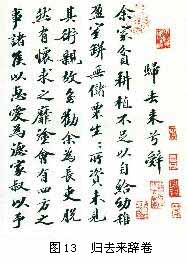 歸去来兮辭
余家貧耕植不足以自給幼稚
盈室缾無儲粟生〻所資未見
其術親故多勸余為長吏脫
然有懷求之靡塗會有四方之
事諸侯以惠愛為德家叔以予
图 13 归去来辞卷